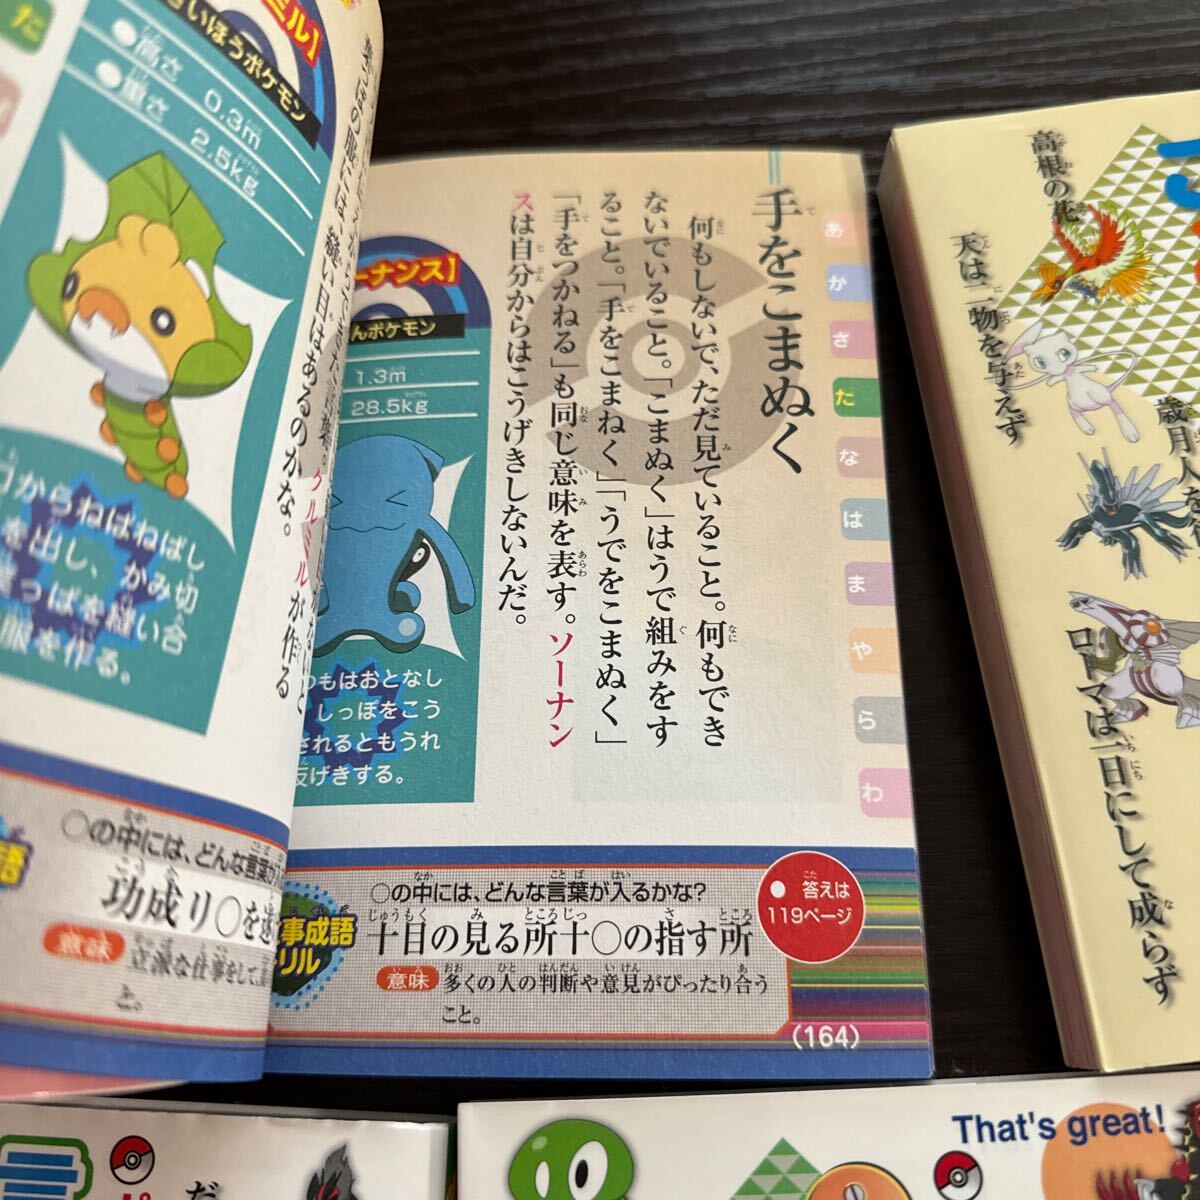 手をこまぬく
何もしないで、ただ見ていること。何もでき
ないでいること。「こまぬく」はうで組みをす
ること。「手をこまねく」「うでをこまぬく」
「手をつかねる」も同じ意味を表す。ソーナン
スは自分からはこうげきしないんだ。
ーナンス】
んポケモン
1.3m
28.5kg
つもはおとなし
しっぽをこう
されるともうれ
反げきする。
あ
か
さ
た
な
は
ま
や
ら
わ
事成語
リル
○の中には、どんな言葉が入るかな?
十目の見る所十○の指す所
意味 多くの人の判断や意見がぴったり合う
こと。
● 答えは
119ページ
(164)
ミル】
さいほうポケモン
●高さ 0.3m
●重さ 2.5kg
クルミルが作る
縫い目はあるのかな。
口からねばねばし
を出し、かみ切
葉っぱを縫い合
服を作る。
だ
語
○の中には、どんな言葉が
功成り○を遂
意味 立派な仕事をして、
と。
高根の花
天は二物を与えず
歳月人を
ローマは一日にして成らず
That's great!
だ